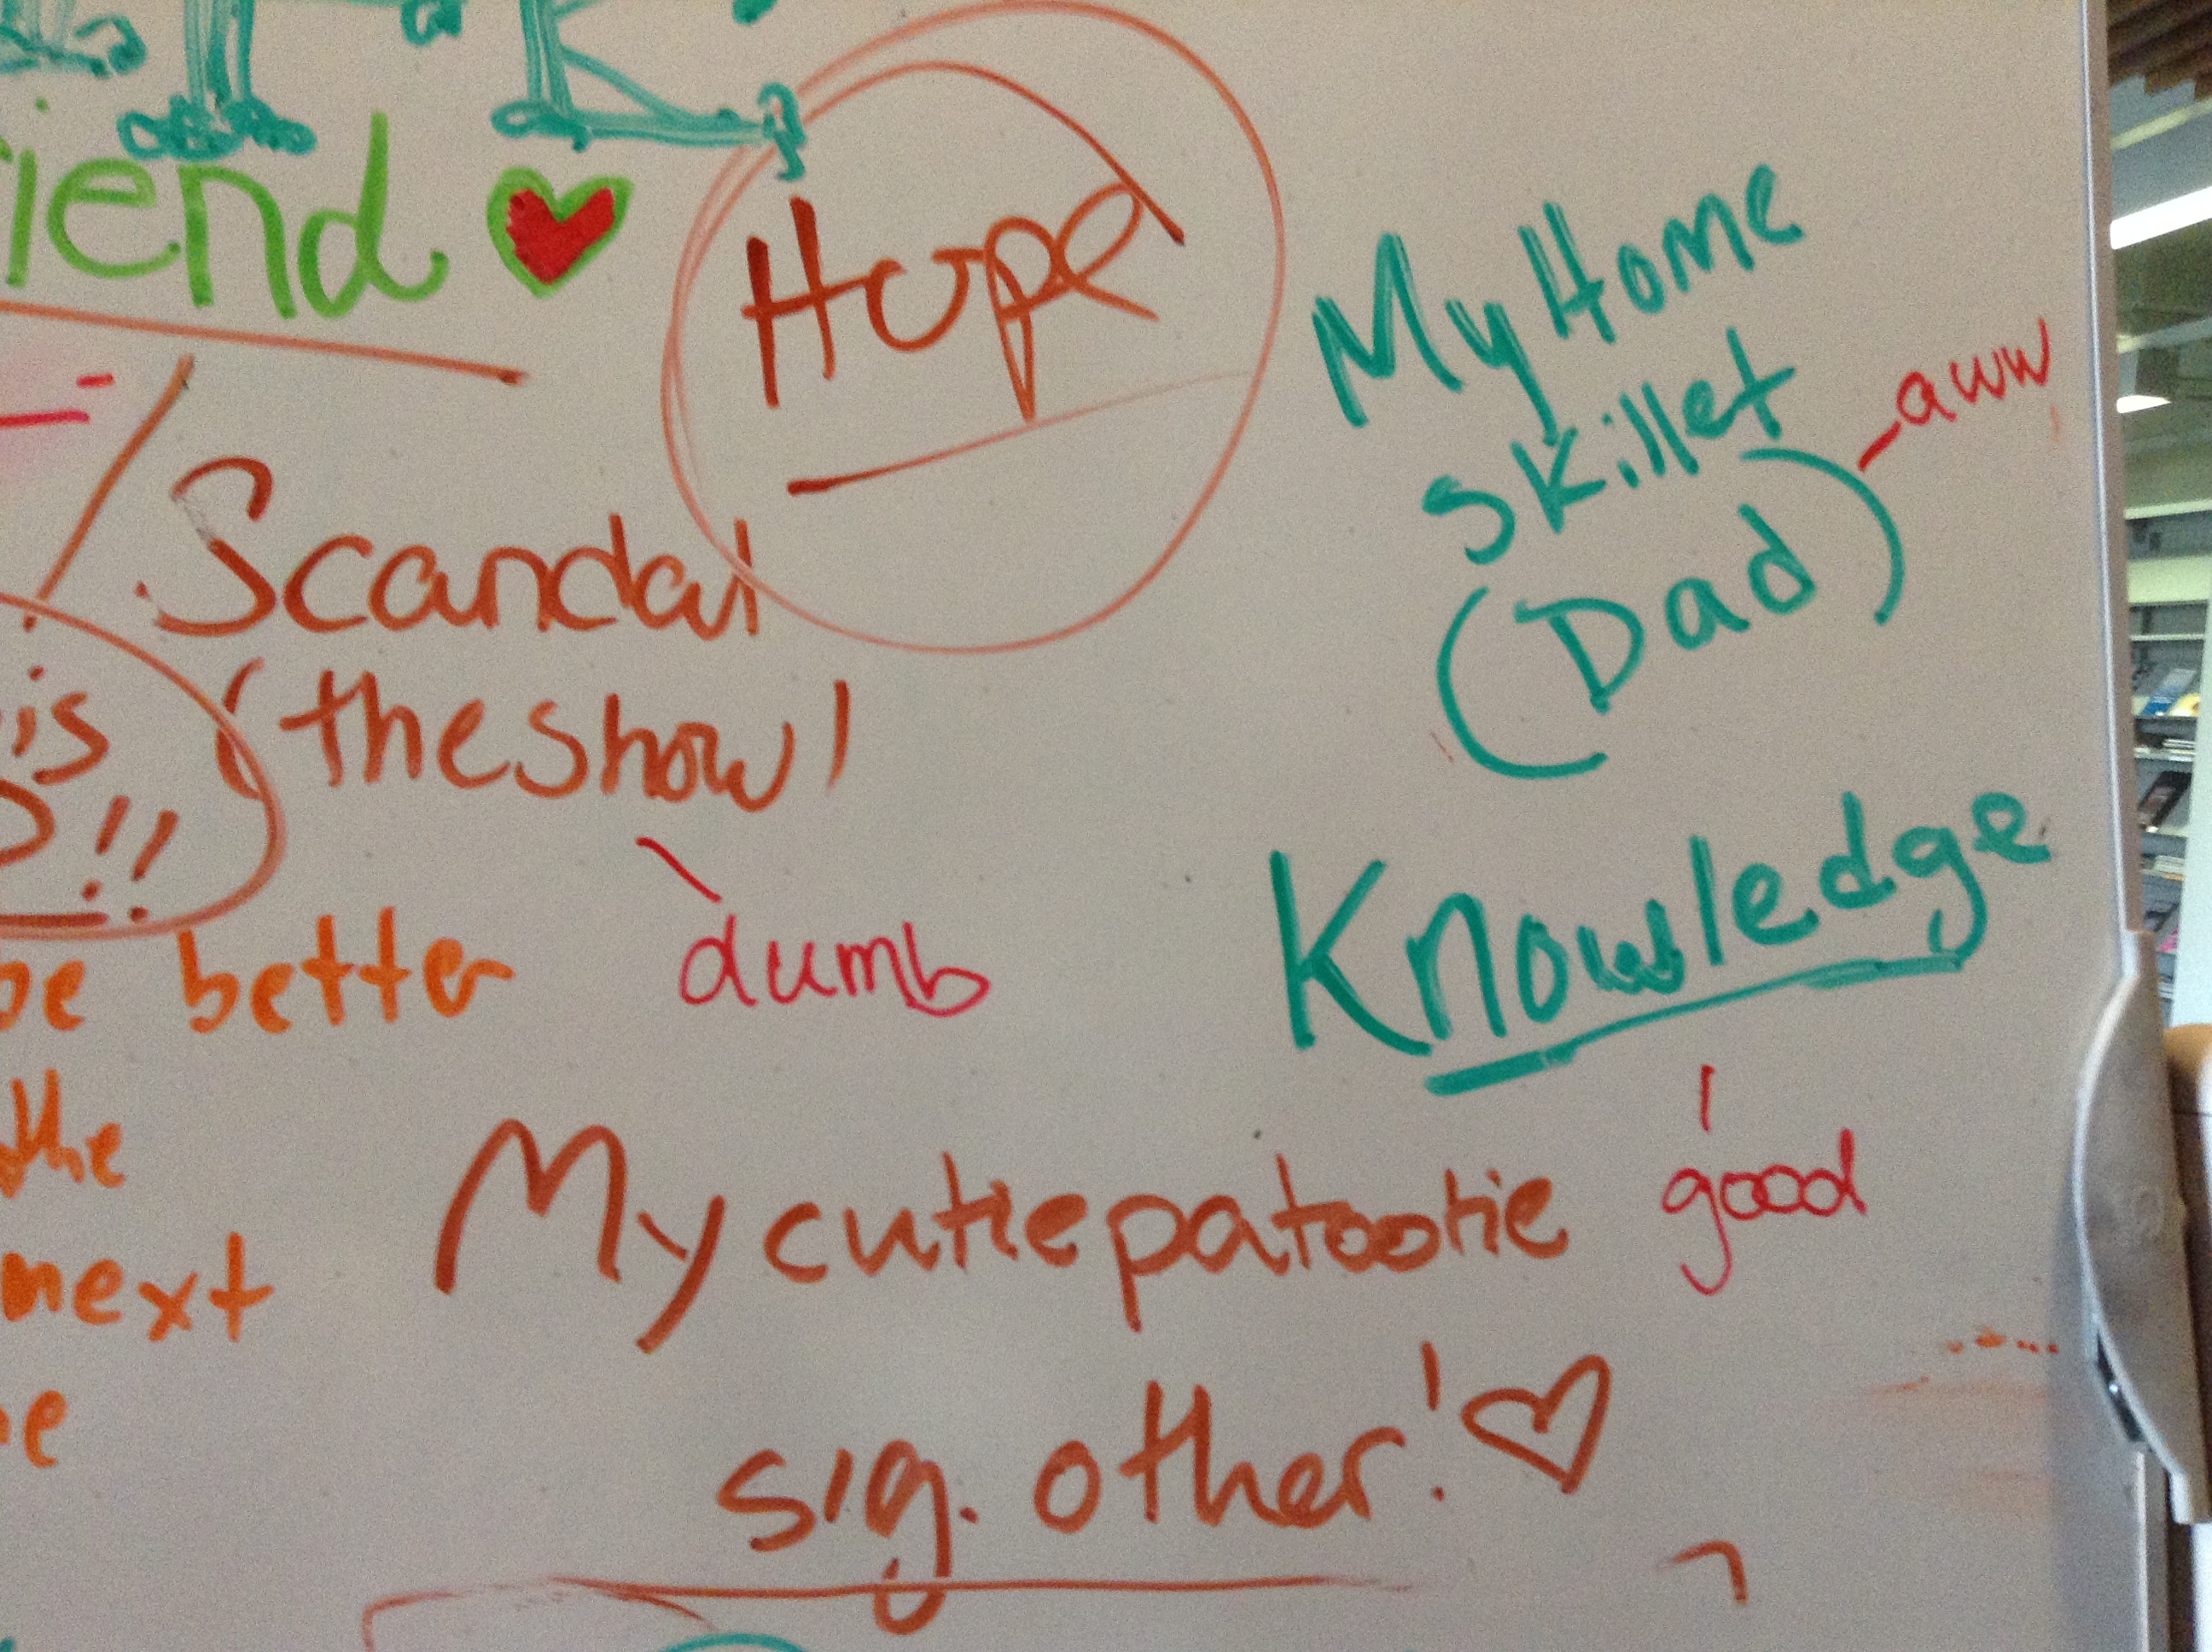 Hope
My Home
skillet
(Dad)
- aww
Scandal
(the show)
- dumb
is
!!
be better
the
next
Knowledge
- good
My cutie patootie
sig. other! ♡